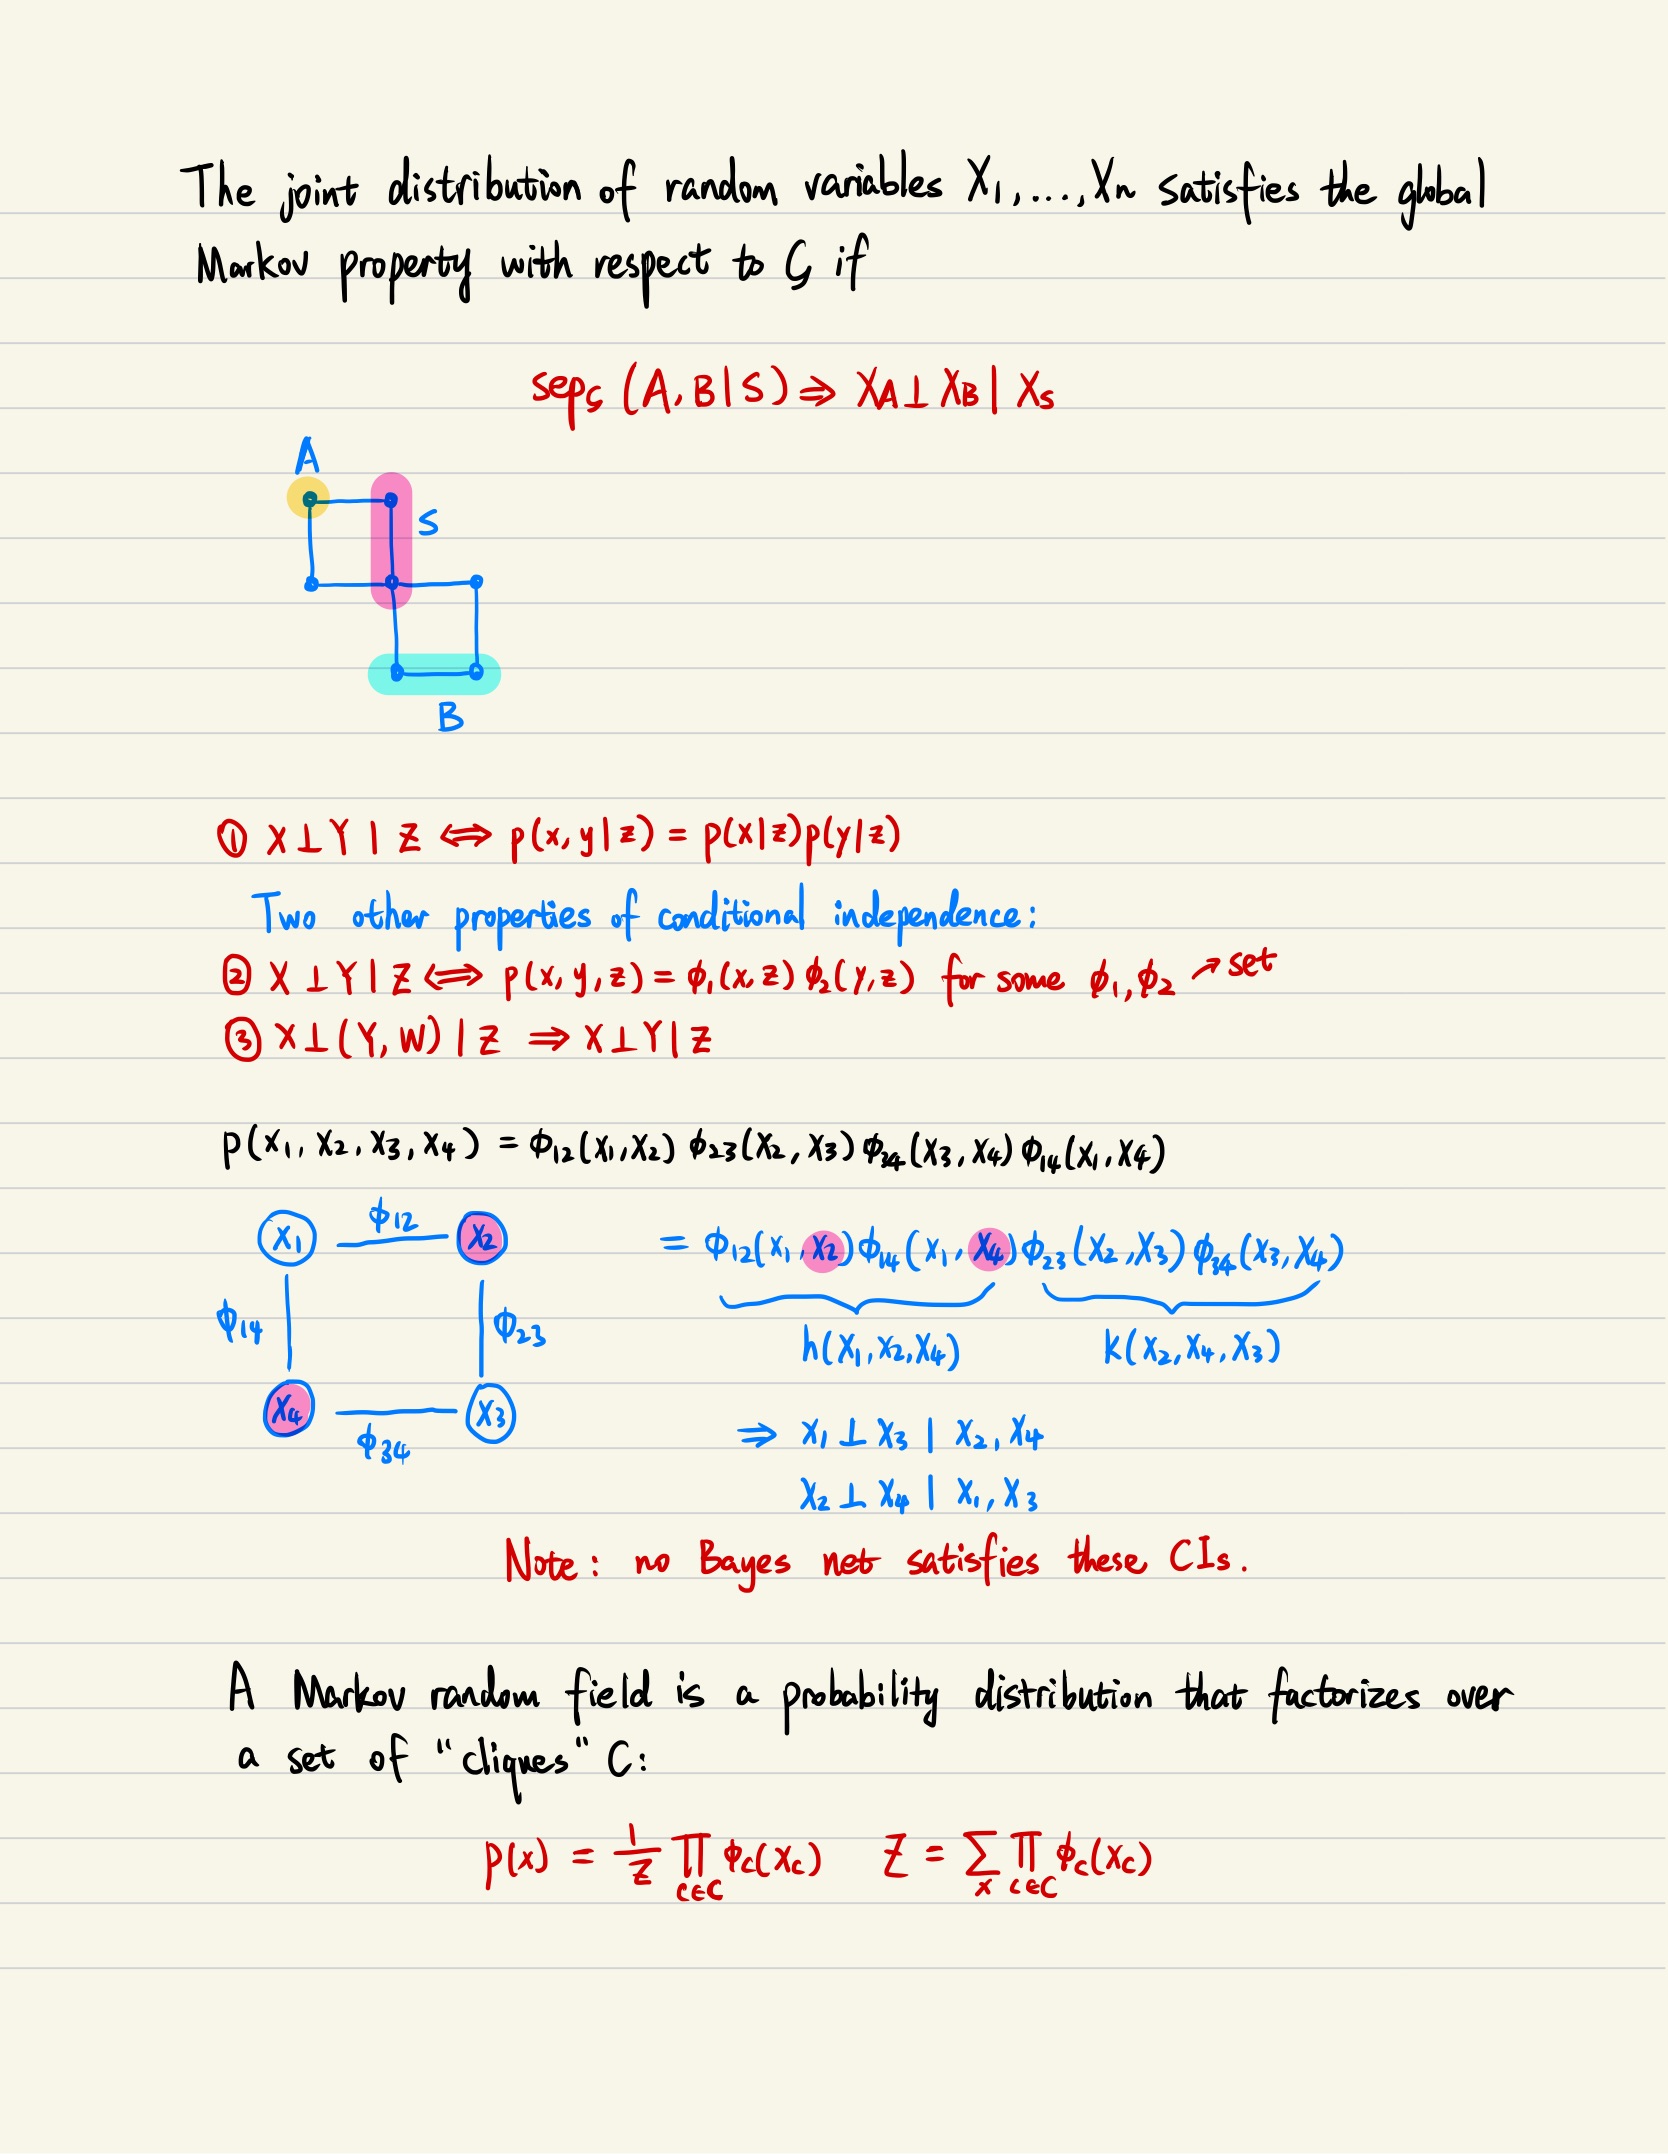 The joint distribution of random variables X₁,...,Xn satisfies the global
Markov property with respect to G if
sep_G (A,B|S) ⇒ X_A ⊥ X_B | X_S
A
S
B
① X ⊥ Y | Z ⟺ p(x,y|z) = p(x|z)p(y|z)
Two other properties of conditional independence:
② X ⊥ Y | Z ⟺ p(x,y,z) = ϕ₁(x,z) ϕ₂(y,z) for some ϕ₁,ϕ₂ ↗ set
③ X ⊥ (Y,W) | Z ⇒ X ⊥ Y | Z
p(x₁, x₂, x₃, x₄) = ϕ₁₂(x₁,x₂) ϕ₂₃(x₂,x₃) ϕ₃₄(x₃,x₄) ϕ₁₄(x₁,x₄)
X₁ ϕ₁₂ X₂
= ϕ₁₂(x₁,x₂) ϕ₁₄(x₁,x₄) ϕ₂₃(x₂,x₃) ϕ₃₄(x₃,x₄)
ϕ₁₄ ϕ₂₃
h(x₁,x₂,x₄) k(x₂,x₄,x₃)
X₄ ϕ₃₄ X₃
⇒ x₁ ⊥ x₃ | x₂, x₄
x₂ ⊥ x₄ | x₁, x₃
Note: no Bayes net satisfies these CIs.
A Markov random field is a probability distribution that factorizes over
a set of "cliques" C:
p(x) = 1/Z ∏_{c∈C} ϕ_c(x_c) Z = ∑_x ∏_{c∈C} ϕ_c(x_c)